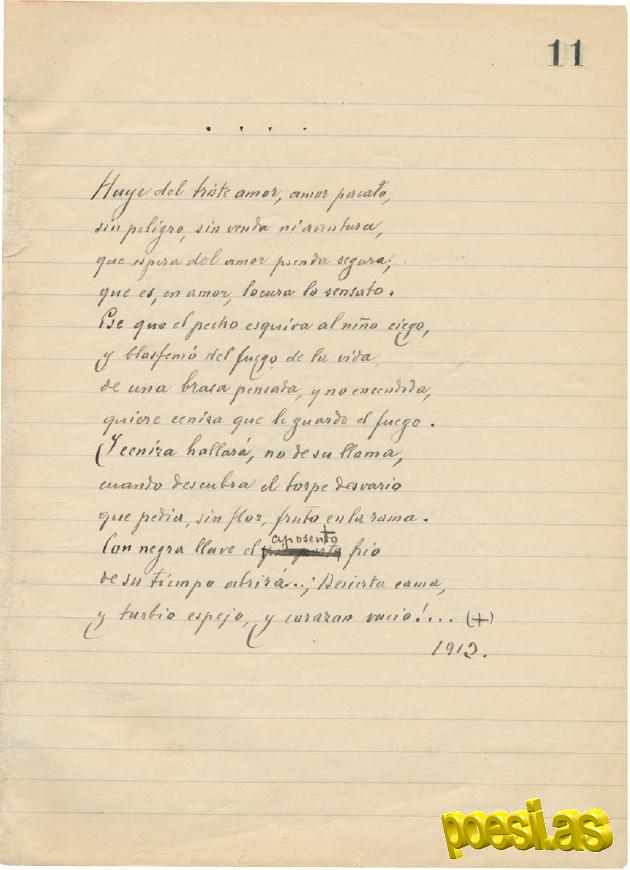 11
. . . .
Huye del triste amor, amor pacato,
sin peligro, sin venda ni aventura,
que espera del amor prenda segura;
que es, en amor, locura lo sensato.
Ese que el pecho esquiva al niño ciego,
y blasfemó del fuego de la vida
de una brasa pensada, y no encendida,
quiere ceniza que le guarde el fuego.
Y ceniza hallará, no de su llama,
cuando descubra el torpe desvario
que pedia, sin flor, fruto en la rama.
aposento
Con negra llave el frio
de su tiempo abrirá..¡Desierta cama,
y turbio espejo, y corazon vacio!... (+)
poesi.as